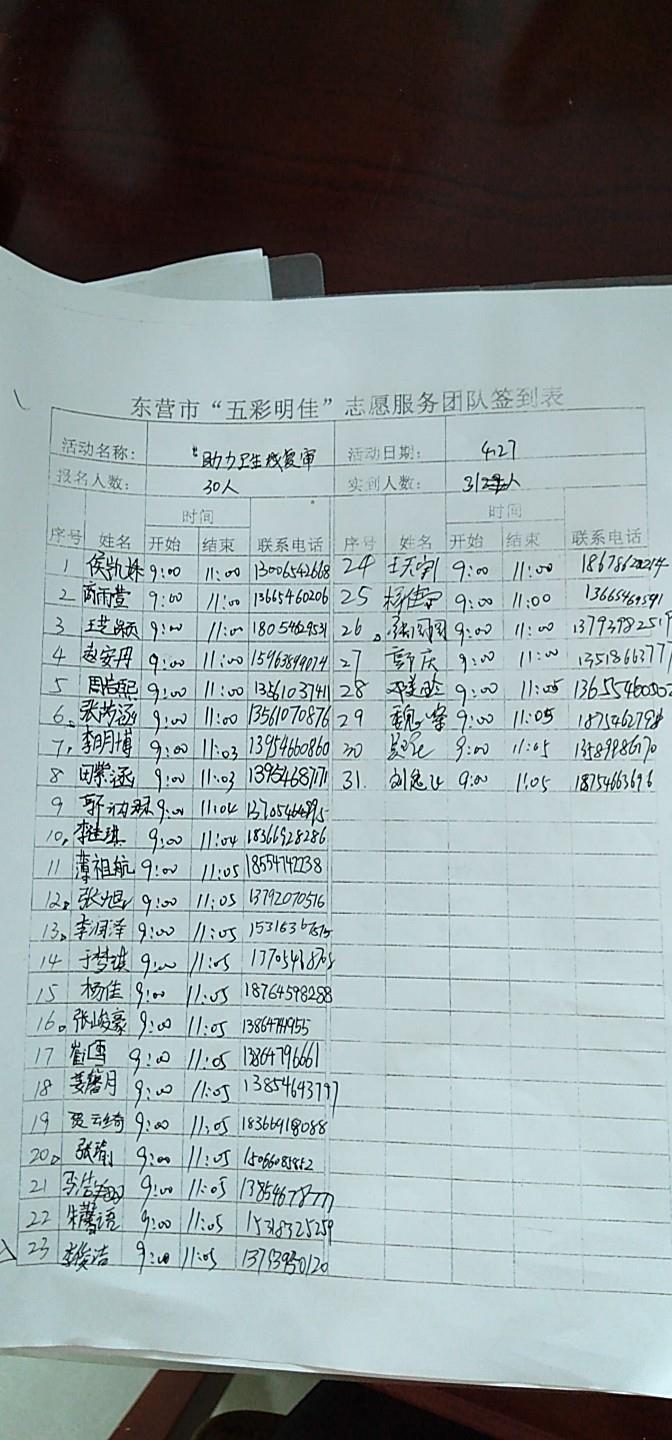 东营市“五彩明佳”志愿服务团队签到表
活动名称： “助力卫生城复审 活动日期： 4.27
报名人数： 30人 实到人数： 31人
序号 姓名 时间 联系电话 序号 姓名 时间 联系电话
开始 结束 开始 结束
1 侯凯姝 9:00 11:00 13006542668 24 9:00 11:00
2 商雨萱 9:00 11:00 13665460206 25 杨佳宁 9:00 11:00
3 王艺颖 9:00 11:00 18054629531 26 9:00 11:00
4 赵安丹 9:00 11:00 15963899074 27 郭庆 9:00 11:00
5 周浩熙 9:00 11:00 1356103741 28 9:00 11:05
6 张芮涵 9:00 11:00 13561070876 29 9:00 11:05
7 李明博 9:00 11:03 13954660860 30 9:00 11:05
8 田紫涵 9:00 11:03 13954687171 31. 9:00 11:05 18754663696
9 9:00 11:04
10 李佳琪 9:00 11:04 18366928286
11 薄祖航 9:00 11:05 18554742238
12 张旭 9:00 11:05 13792070516
13 李润泽 9:00 11:05
14 于梦琪 9:00 11:05
15 杨佳 9:00 11:05 18764598288
16 张峻豪 9:00 11:05
17 崔雪 9:00 11:05 13864796661
18 姜馨月 9:00 11:05 13854643797
19 贾云绮 9:00 11:05 18366918088
20 张瑜 9:00 11:05 15066085852
21 9:00 11:05
22 朱馨语 9:00 11:05 15318325259
23 李俊洁 9:00 11:05